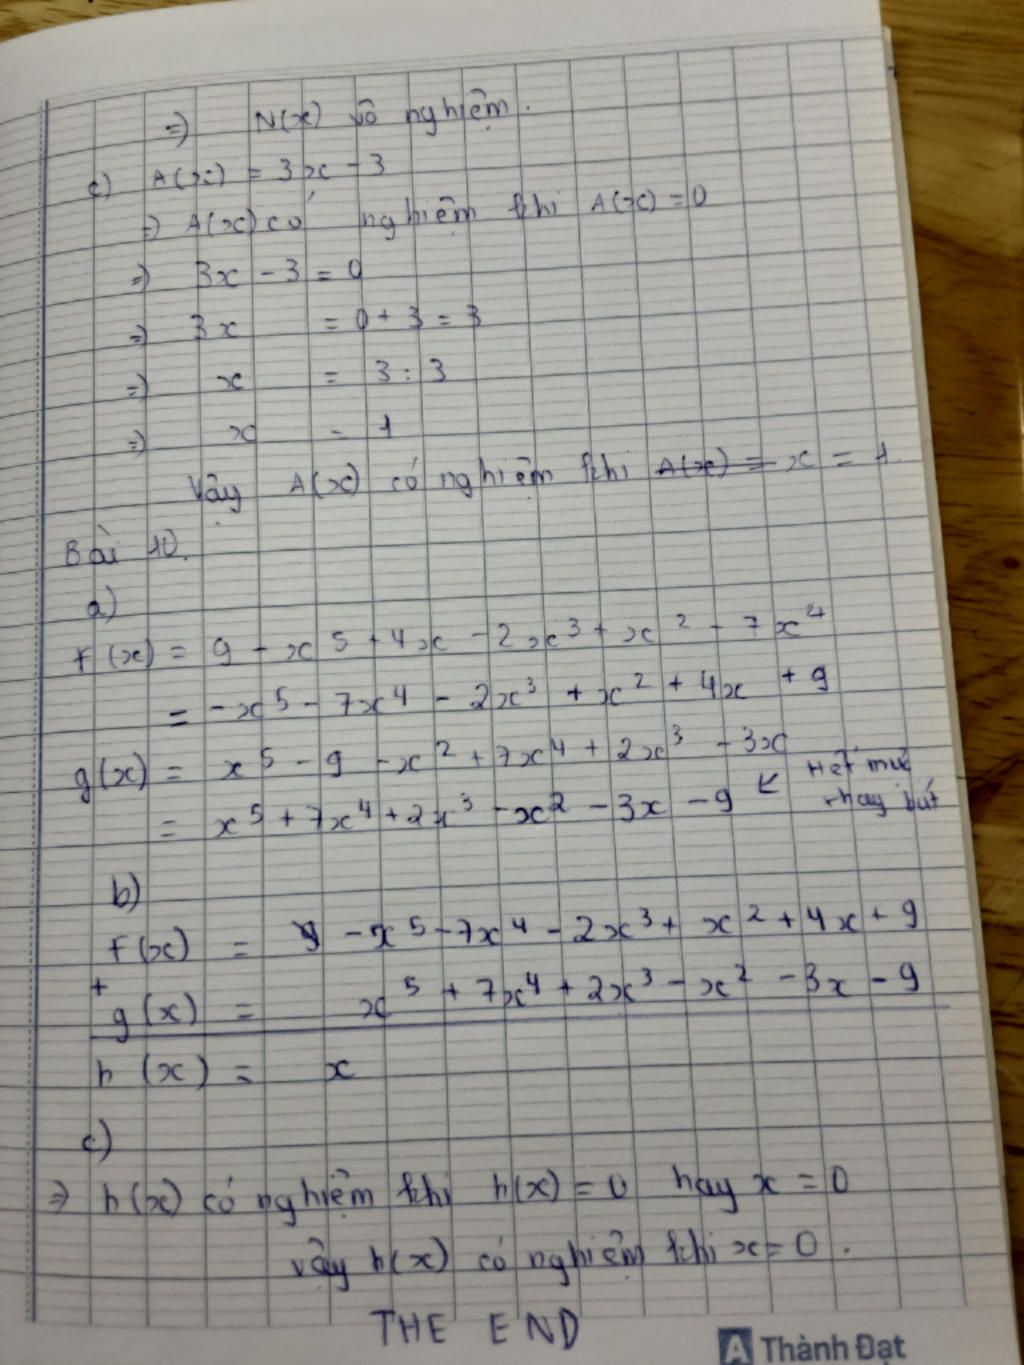 =) N(x) vô nghiệm.
c) A(x) = 3x - 3
=) A(x) có nghiệm khi A(x) = 0
=) 3x - 3 = 0
=) 3x = 0 + 3 = 3
=) x = 3 : 3
=) x = 1
Vậy A(x) có nghiệm khi A(x) = x = 1
Bài 10.
a)
f(x) = 9 - x⁵ + 4x - 2x³ + x² - 7x⁴
= -x⁵ - 7x⁴ - 2x³ + x² + 4x + 9
g(x) = x⁵ - 9 - x² + 7x⁴ + 2x³ - 3x
= x⁵ + 7x⁴ + 2x³ - x² - 3x - 9 ↙ Hết mực
thay bút
b)
f(x) = - x⁵ - 7x⁴ - 2x³ + x² + 4x + 9
+
g(x) = x⁵ + 7x⁴ + 2x³ - x² - 3x - 9
h(x) = x
c)
=> h(x) có nghiệm khi h(x) = 0 hay x = 0
vậy h(x) có nghiệm khi x = 0.
THE END
A Thành Đạt